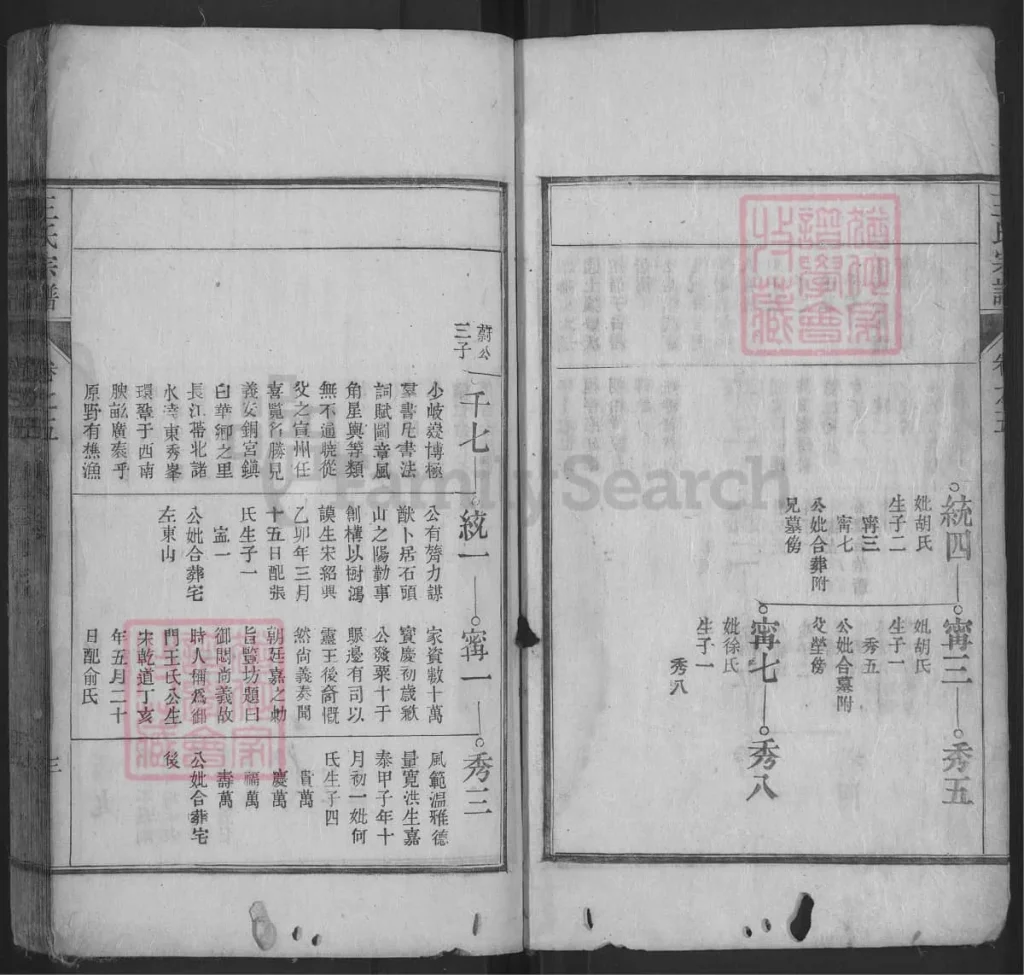 王氏宗譜
卷之五
統四
妣胡氏
生子二
甯三
甯七
公妣合葬附
兄墓傍
甯三
妣胡氏
生子一
秀五
公妣合墓附
父塋傍
甯七
妣徐氏
生子一
秀八
秀五
秀八
蔚公
三子
千七
少岐嶷博極
羣書凡書法
詞賦圖章風
角星輿等類
無不通曉從
父之宣州任
喜覽名勝見
義安銅宮鎮
白華鄉之里
長江帶北諸
水遶東秀峯
環聳于西南
腴畝廣袤乎
原野有樵漁
統一
公有膂力謀
猷卜居石頭
山之陽勤事
創構以樹鴻
謨生宋紹興
乙卯年三月
十五日配張
氏生子一
甯一
公妣合葬宅
左東山
甯一
家資數十萬
寶慶初歲歉
公發粟十于
縣邊有司以
靈王後裔慨
然尚義奏聞
朝廷嘉之勅
旨豎坊題曰
御問尚義故
時人稱為御
門王氏公生
宋乾道丁亥
年五月二十
日配俞氏
秀三
風範溫雅德
量寬洪生嘉
泰甲子年十
月初一妣何
氏生子四
貴萬
慶萬
福萬
壽萬
公妣合葬宅
後
王氏宗譜
卷之五
三
FamilySearch